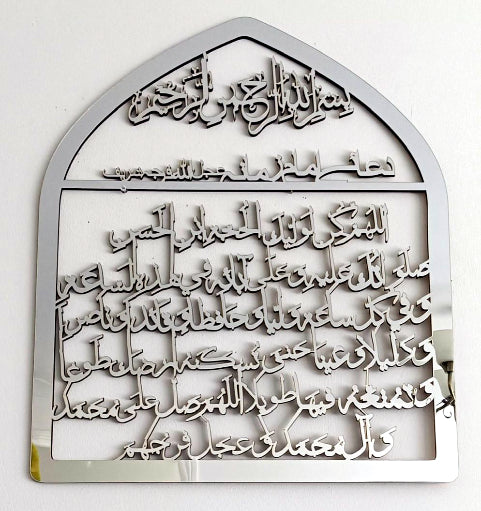 بسم الله الرحمن الرحیم
دعای امام زمان عجل الله فرجه شریف
اللهم کن لولیک الحجة ابن الحسن
صلواتک علیه و علی آبائه فی هذه الساعة
و فی کل ساعة ولیا و حافظا و قائدا و ناصرا
و دلیلا و عینا حتی تسکنه ارضک طوعا
و تمتعه فیها طویلا اللهم صل علی محمد
و آل محمد و عجل فرجهم